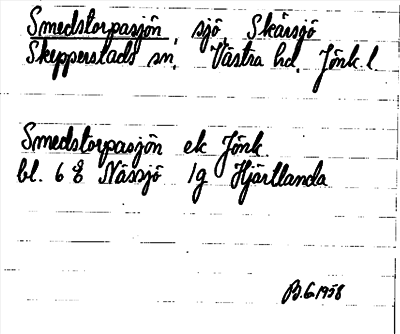 Smedstorpasjön, sjö, Skärsjö
Skepperstads sn. Västra hd. Jönk. l
Smedstorpasjön ek Jönk
bl. 6 8 Nässjö 1g Hjärtlanda
B.G. 1958